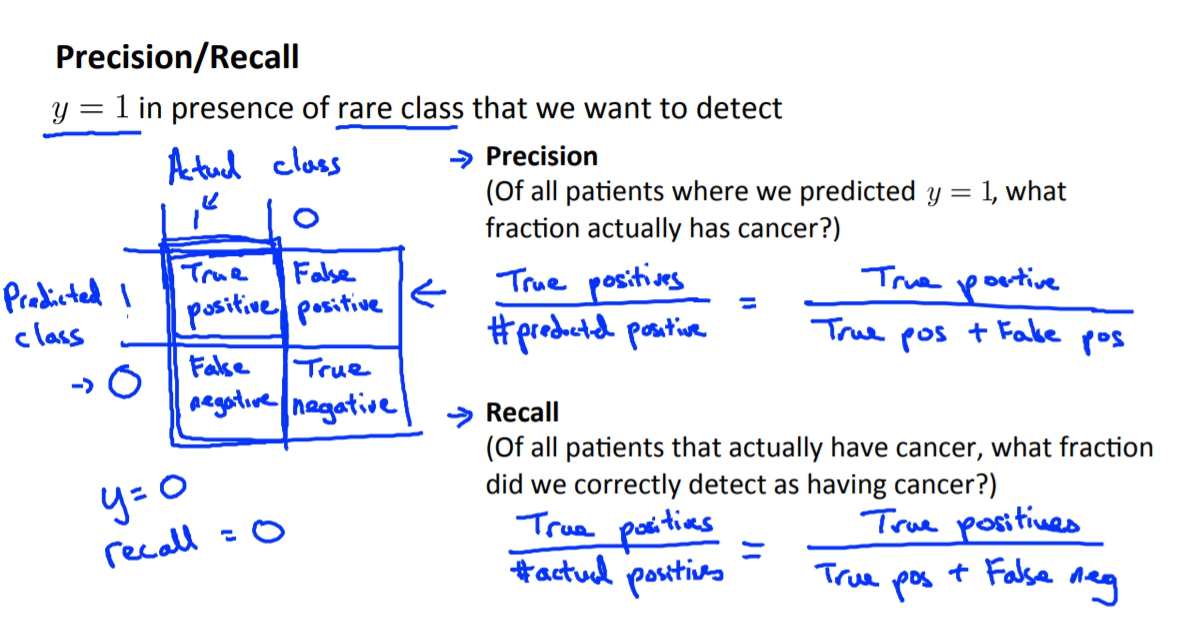 Precision/Recall
y = 1 in presence of rare class that we want to detect
Actual class
1 0
Predicted class
1
True positive
False positive
→ 0
False negative
True negative
y = 0
recall = 0
→ Precision
(Of all patients where we predicted y = 1, what
fraction actually has cancer?)
True positives
#predicted positive
=
True positive
True pos + False pos
→ Recall
(Of all patients that actually have cancer, what fraction
did we correctly detect as having cancer?)
True positives
#actual positives
=
True positives
True pos + False neg